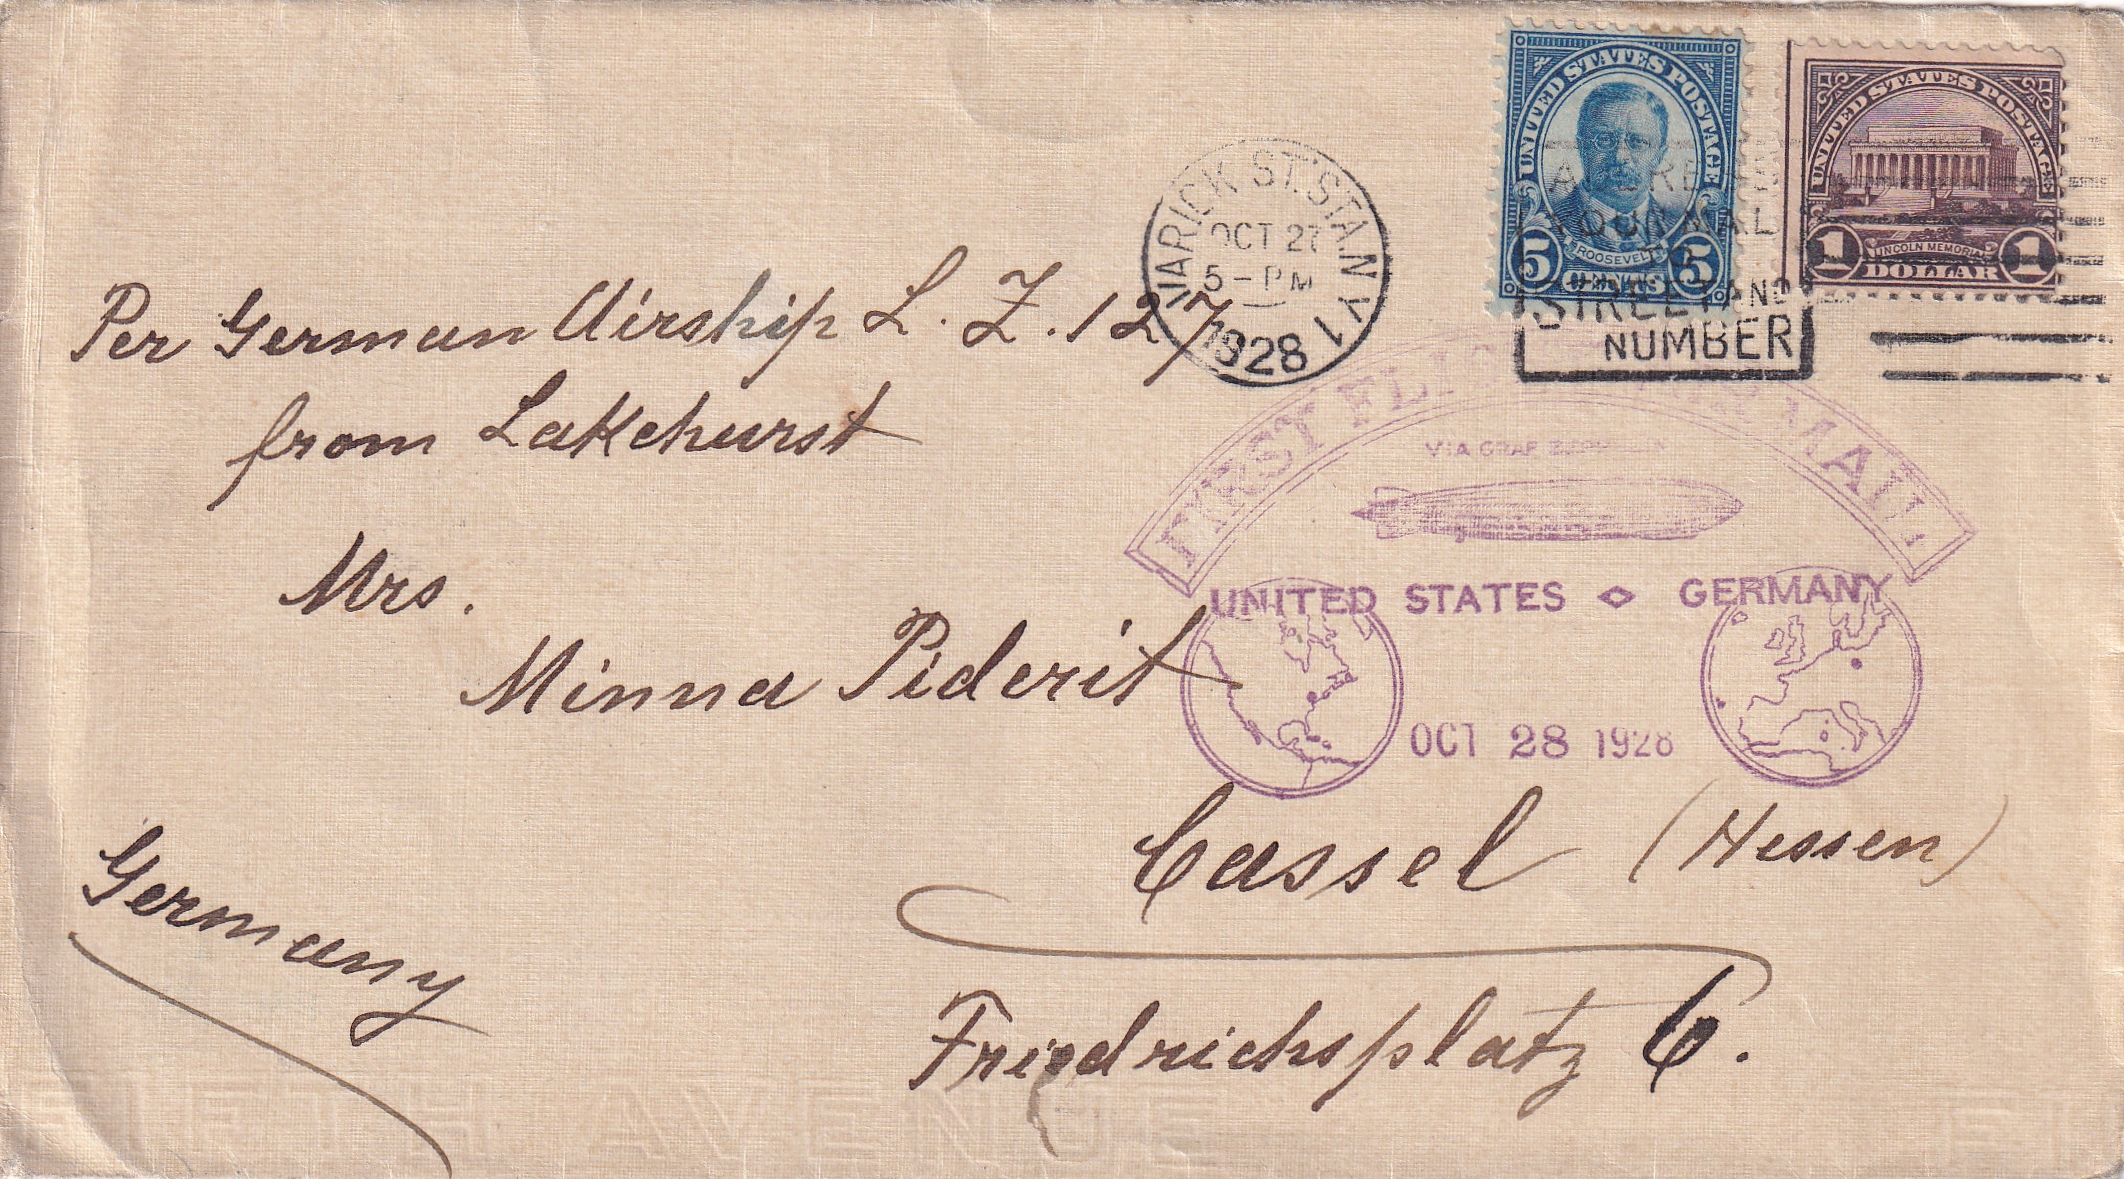 UNITED STATES POSTAGE
ROOSEVELT
5 CENTS 5
UNITED STATES POSTAGE
LINCOLN MEMORIAL
1 DOLLAR 1
VARICK ST. STA N Y 1
OCT 27
5 - PM
1928
ADDRESS
YOUR MAIL
TO
STREET AND
NUMBER
Per German Airship L. Z. 127
from Lakehurst
FIRST FLIGHT AIR MAIL
VIA GRAF ZEPPELIN
UNITED STATES ◇ GERMANY
OCT 28 1928
Mrs.
Minna Piderit
Cassel (Hessen)
Germany
Friedrichsplatz 6.
FIFTH AVENUE FI